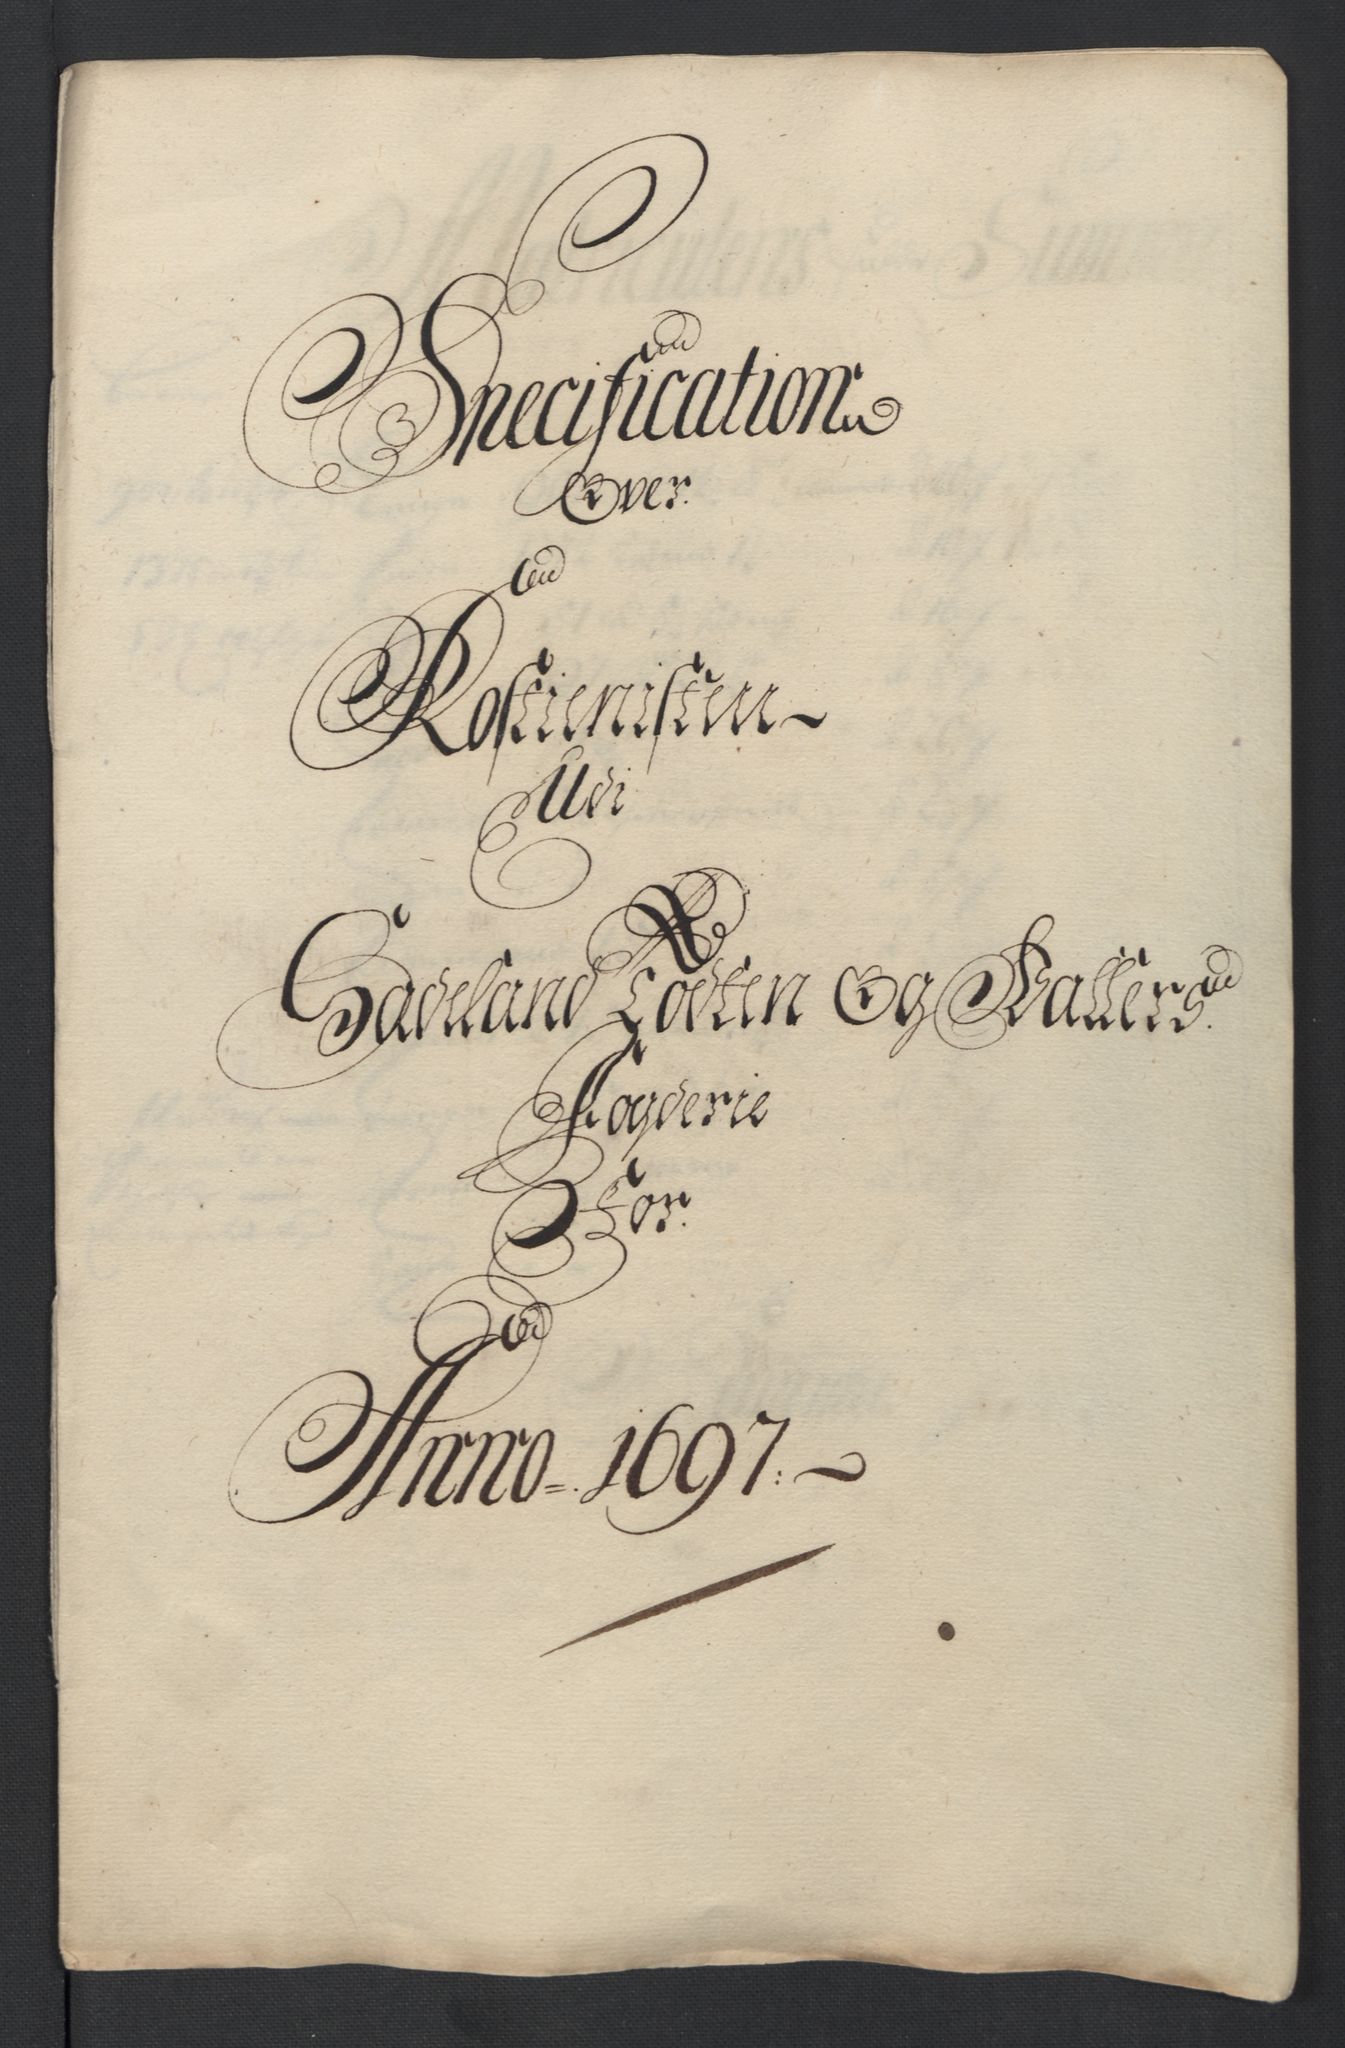 Specification
Over
Rostienisten
Udi
Hadeland Todten Og Valders
Fogderie
For
Anno 1697